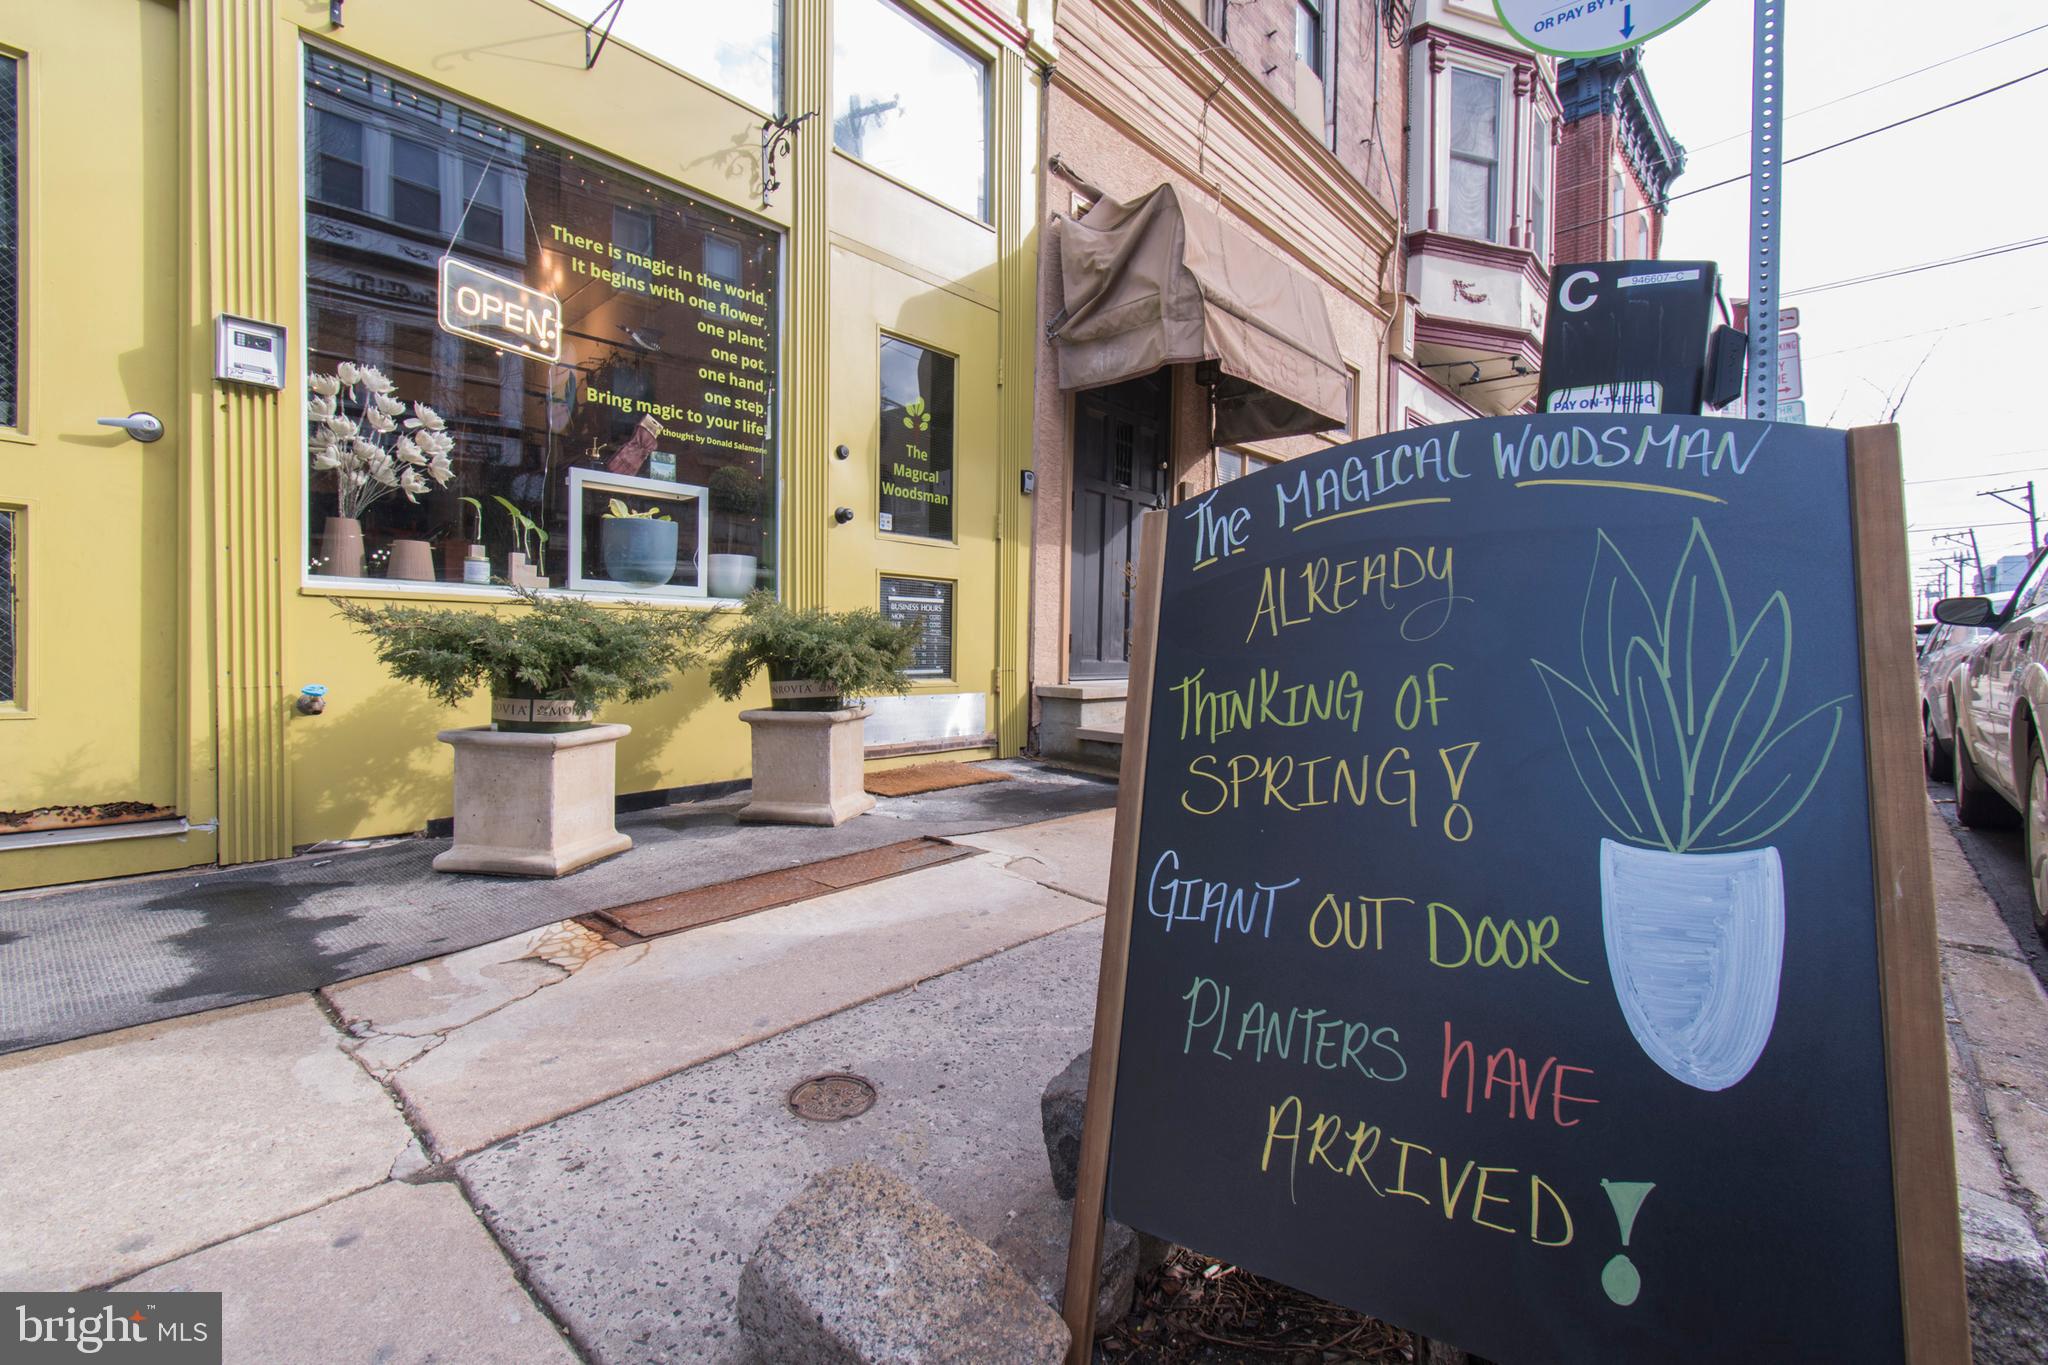 OR PAY BY
C
946607-C
PAY ON-THE-GO
OPEN
There is magic in the world.
It begins with one flower,
one plant,
one pot,
one hand,
one step.
Bring magic to your life!
thought by Donald Salamone
The
Magical
Woodsman
BUSINESS HOURS
MON
The MAGICAL WOODSMAN
ALREADY
THINKING OF
SPRING!
GIANT OUT DOOR
PLANTERS HAVE
ARRIVED!
NROVIA
bright™ MLS